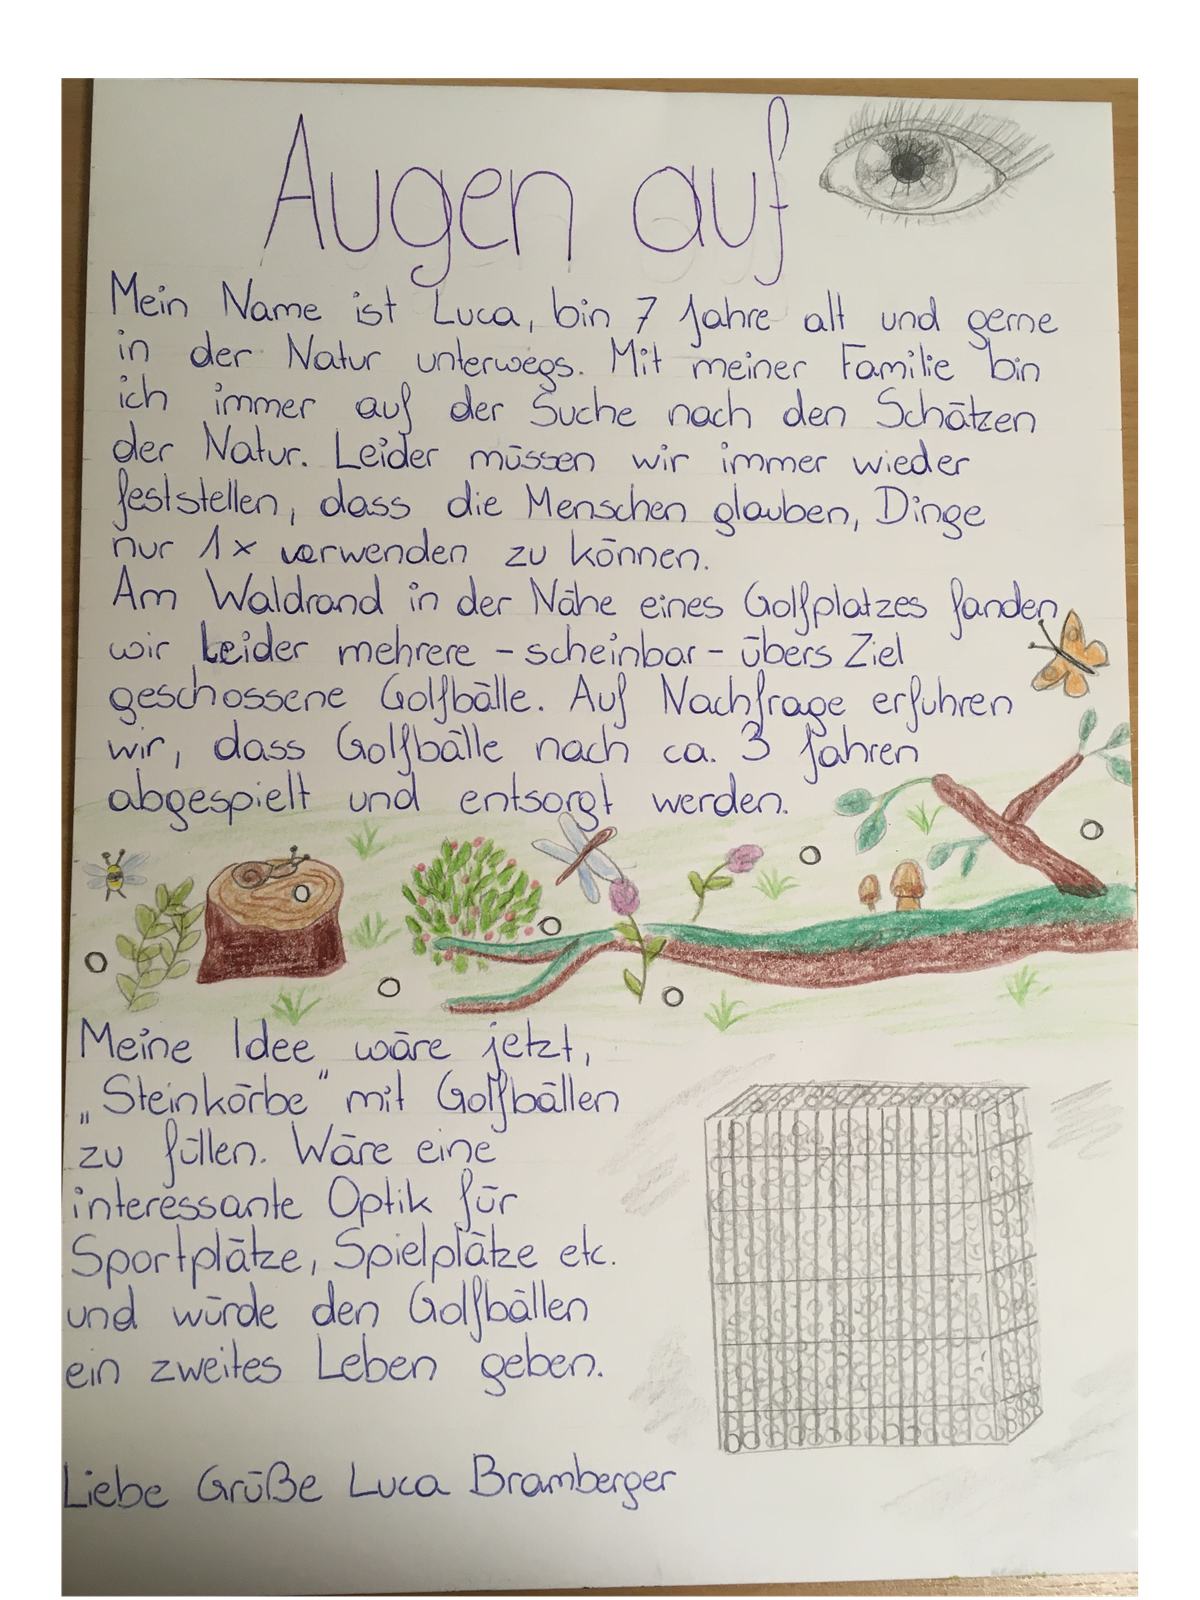 Augen auf
Mein Name ist Luca, bin 7 Jahre alt und gerne
in der Natur unterwegs. Mit meiner Familie bin
ich immer auf der Suche nach den Schätzen
der Natur. Leider müssen wir immer wieder
feststellen, dass die Menschen glauben, Dinge
nur 1x verwenden zu können.
Am Waldrand in der Nähe eines Golfplatzes fanden
wir Leider mehrere - scheinbar - übers Ziel
geschossene Golfbälle. Auf Nachfrage erfuhren
wir, dass Golfbälle nach ca. 3 Jahren
abgespielt und entsorgt werden.
Meine Idee wäre jetzt,
„Steinkörbe" mit Golfbällen
zu füllen. Wäre eine
interessante Optik für
Sportplätze, Spielplätze etc.
und würde den Golfbällen
ein zweites Leben geben.
Liebe Grüße Luca Bramberger